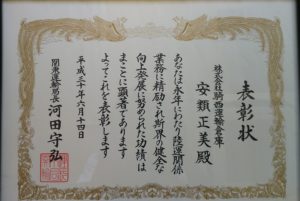 表彰状
株式会社騎西運輸倉庫
安類正美殿
あなたは永年にわたり陸運関係
業務に精励され斯界の健全な
向上発展に努められた功績は
まことに顕著であります
よってこれを表彰します
平成三十年六月十四日
関東運輸局長 河田守弘